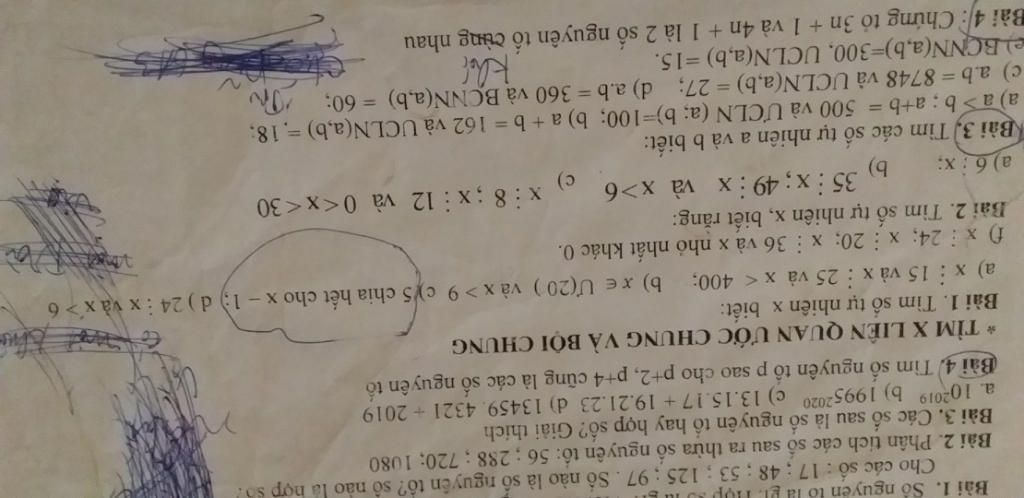 Bài 1. Số nguyên tố là gì? Hợp số là gì?
Cho các số : 17 ; 48 ; 53 ; 125 ; 97 . Số nào là số nguyên tố? số nào là hợp số?
Bài 2. Phân tích các số sau ra thừa số nguyên tố: 56 ; 288 ; 720; 1080
Bài 3. Các số sau là số nguyên tố hay hợp số? Giải thích
a. 10²⁰¹⁹ b) 1995²⁰²⁰ c) 13.15.17 + 19.21.23 d) 13459. 4321 + 2019
Bài 4. Tìm số nguyên tố p sao cho p+2, p+4 cũng là các số nguyên tố
* TÌM X LIÊN QUAN ƯỚC CHUNG VÀ BỘI CHUNG
Bài 1. Tìm số tự nhiên x biết:
a) x ⋮ 15 và x ⋮ 25 và x < 400; b) x ∈ Ư(20) và x > 9 c) 5 chia hết cho x – 1; d ) 24 ⋮ x và x > 6
f) x ⋮ 24; x ⋮ 20; x ⋮ 36 và x nhỏ nhất khác 0.
Bài 2. Tìm số tự nhiên x, biết rằng:
a) 6 ⋮ x; b) 35 ⋮ x ; 49 ⋮ x và x > 6 c) x ⋮ 8 ; x ⋮ 12 và 0 < x < 30
Bài 3. Tìm các số tự nhiên a và b biết:
a) a > b ; a+b = 500 và ƯCLN (a; b)=100; b) a + b = 162 và UCLN(a,b) = 18;
c) a.b = 8748 và UCLN(a,b) = 27; d) a.b = 360 và BCNN(a,b) = 60;
e) BCNN(a,b)=300, UCLN(a,b) =15.
Bài 4 : Chứng tỏ 3n + 1 và 4n + 1 là 2 số nguyên tố cùng nhau